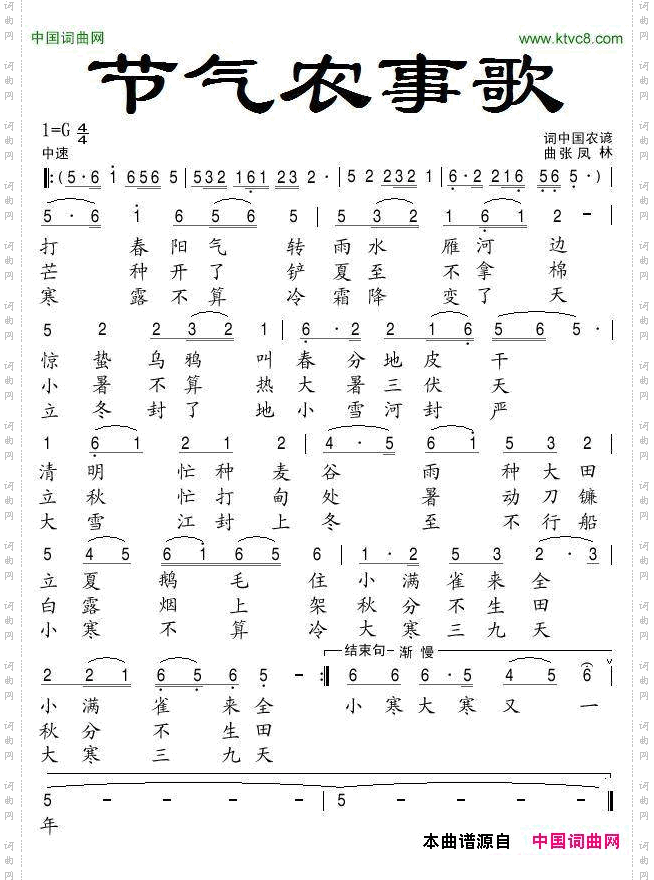 中国词曲网 www.ktvc8.com
节气农事歌
1=G 4/4
中速
词中国农谚
曲张凤林
‖:(5·6 1 656 5 | 532 161 23 2· | 5 2 232 1 | 6·2 216 56 5·)|
5·6 1 6 5 6 | 5 3 2 1 6 1 2 - |
打春阳气转雨水雁河边
芒种开了铲夏至不拿棉
寒露不算冷霜降变了天
5 2 2 2 3 2 1 | 6·2 2 1 6 5 6 5·|
惊蛰乌鸦叫春分地皮干
小暑不算热大暑三伏天
立冬封了地小雪河封严
1 6 1 2 1 2 | 4·5 6 1 5 3 2 |
清明忙种麦谷雨种大田
立秋忙打甸处暑动刀镰
大雪江封上冬至不行船
5 4 5 6 1 6 5 6 | 1·2 5 3 2·3 |
立夏鹅毛住小满雀来全
白露烟上架秋分不生田
小寒不算冷大寒三九天
结束句 渐慢
2 2 1 6 5 6 5 - :‖ 6 6 6·5 4 5 6
小满雀来全 小寒大寒又一
秋分不生田
大寒三九天
5 - - - | 5 - - - ‖
年
本曲谱源自 中国词曲网
词曲网